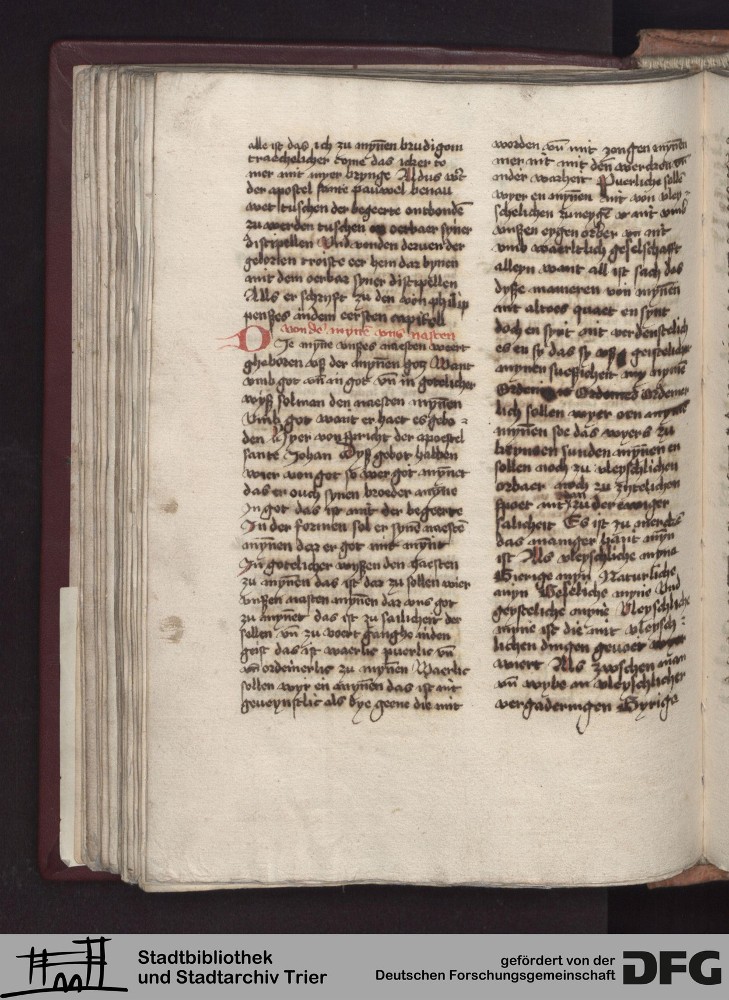 alle ist das ich zu mynen brudigom
trachelicher come das icker to
mer mit myer brynge Aldus wrt
der apostel sante pauwel benau
wet tuschen der begeerte ontbonden
zu werden tuschen oerbaer syner
discipellen Vnd vonden derven der
geborlen troiste eer hem dar bynen
mit dem oerbar syner discipellen
Als er schryft zu den von philip
penses in dem eersten capittell
von de myne vns nasten
Die myne vnses naesten weert
ghaboren vß der mynen gotz Want
vmb got vn in got vn in gotelicher
wyß sol man den naesten mynen
Vmb got want er haet es gebo
den Hyer von spricht der apoestel
sante Johan Dyß gebot halben
wier von got so wer got mynet
das er ouch synen broeder myne
In got das ist mit der begeerte
In der formen sol er syne naesten
mynen dar er got mit mynt
In gotelicher wyßen den naesten
zu mynen das ist dar zu sollen wier
vnsen naesten mynen dar vns got
zu mynet das ist zu sailicheit der
sellen vn zu voert ganghe in den
geist das ist waerlic puerlic vn
vn ordeinerlic zu mynen Waerlic
sollen wyr en mynen das ist nit
geveynstlic als dye geene die mit
worden vn mit zongen mynen
mer nit mit den wercken vn
in der warheit Puerliche solle
wyer en mynen nit von vley
schelichen zuneygen vn nit vmb
vnsen eygen orber vn nit
vmb waerltlich geselschaft
alleyn want all ist sach das
dyße maneren von mynen
nit altoes quaet en synt
doch en synt nit verdenstelich
es en sy das sy vß geistelicher
mynen
Ordemer
lich sollen wyer oen mynen
mynen soe das wyers zu
gheynen sunden mynen en
sollen noch zu vleyschlichen
orbaer noch zu zytelichen
spoet mer zu der ewiger
salicheit Es ist zu mercken
das maniger hant myn
ist Als vleyschliche myne
Gierige myn Naturliche
myn Weseliche myne Vnd
geysteliche myne Vleyschliche
myne ist die mit vleysch
lichen dingen gevoet
wiert Als zwschen man
vn wybe an vleyschlicher
vergaderungen Gyrige
Stadtbibliothek
und Stadtarchiv Trier
gefördert von der
Deutschen Forschungsgemeinschaft
DFG